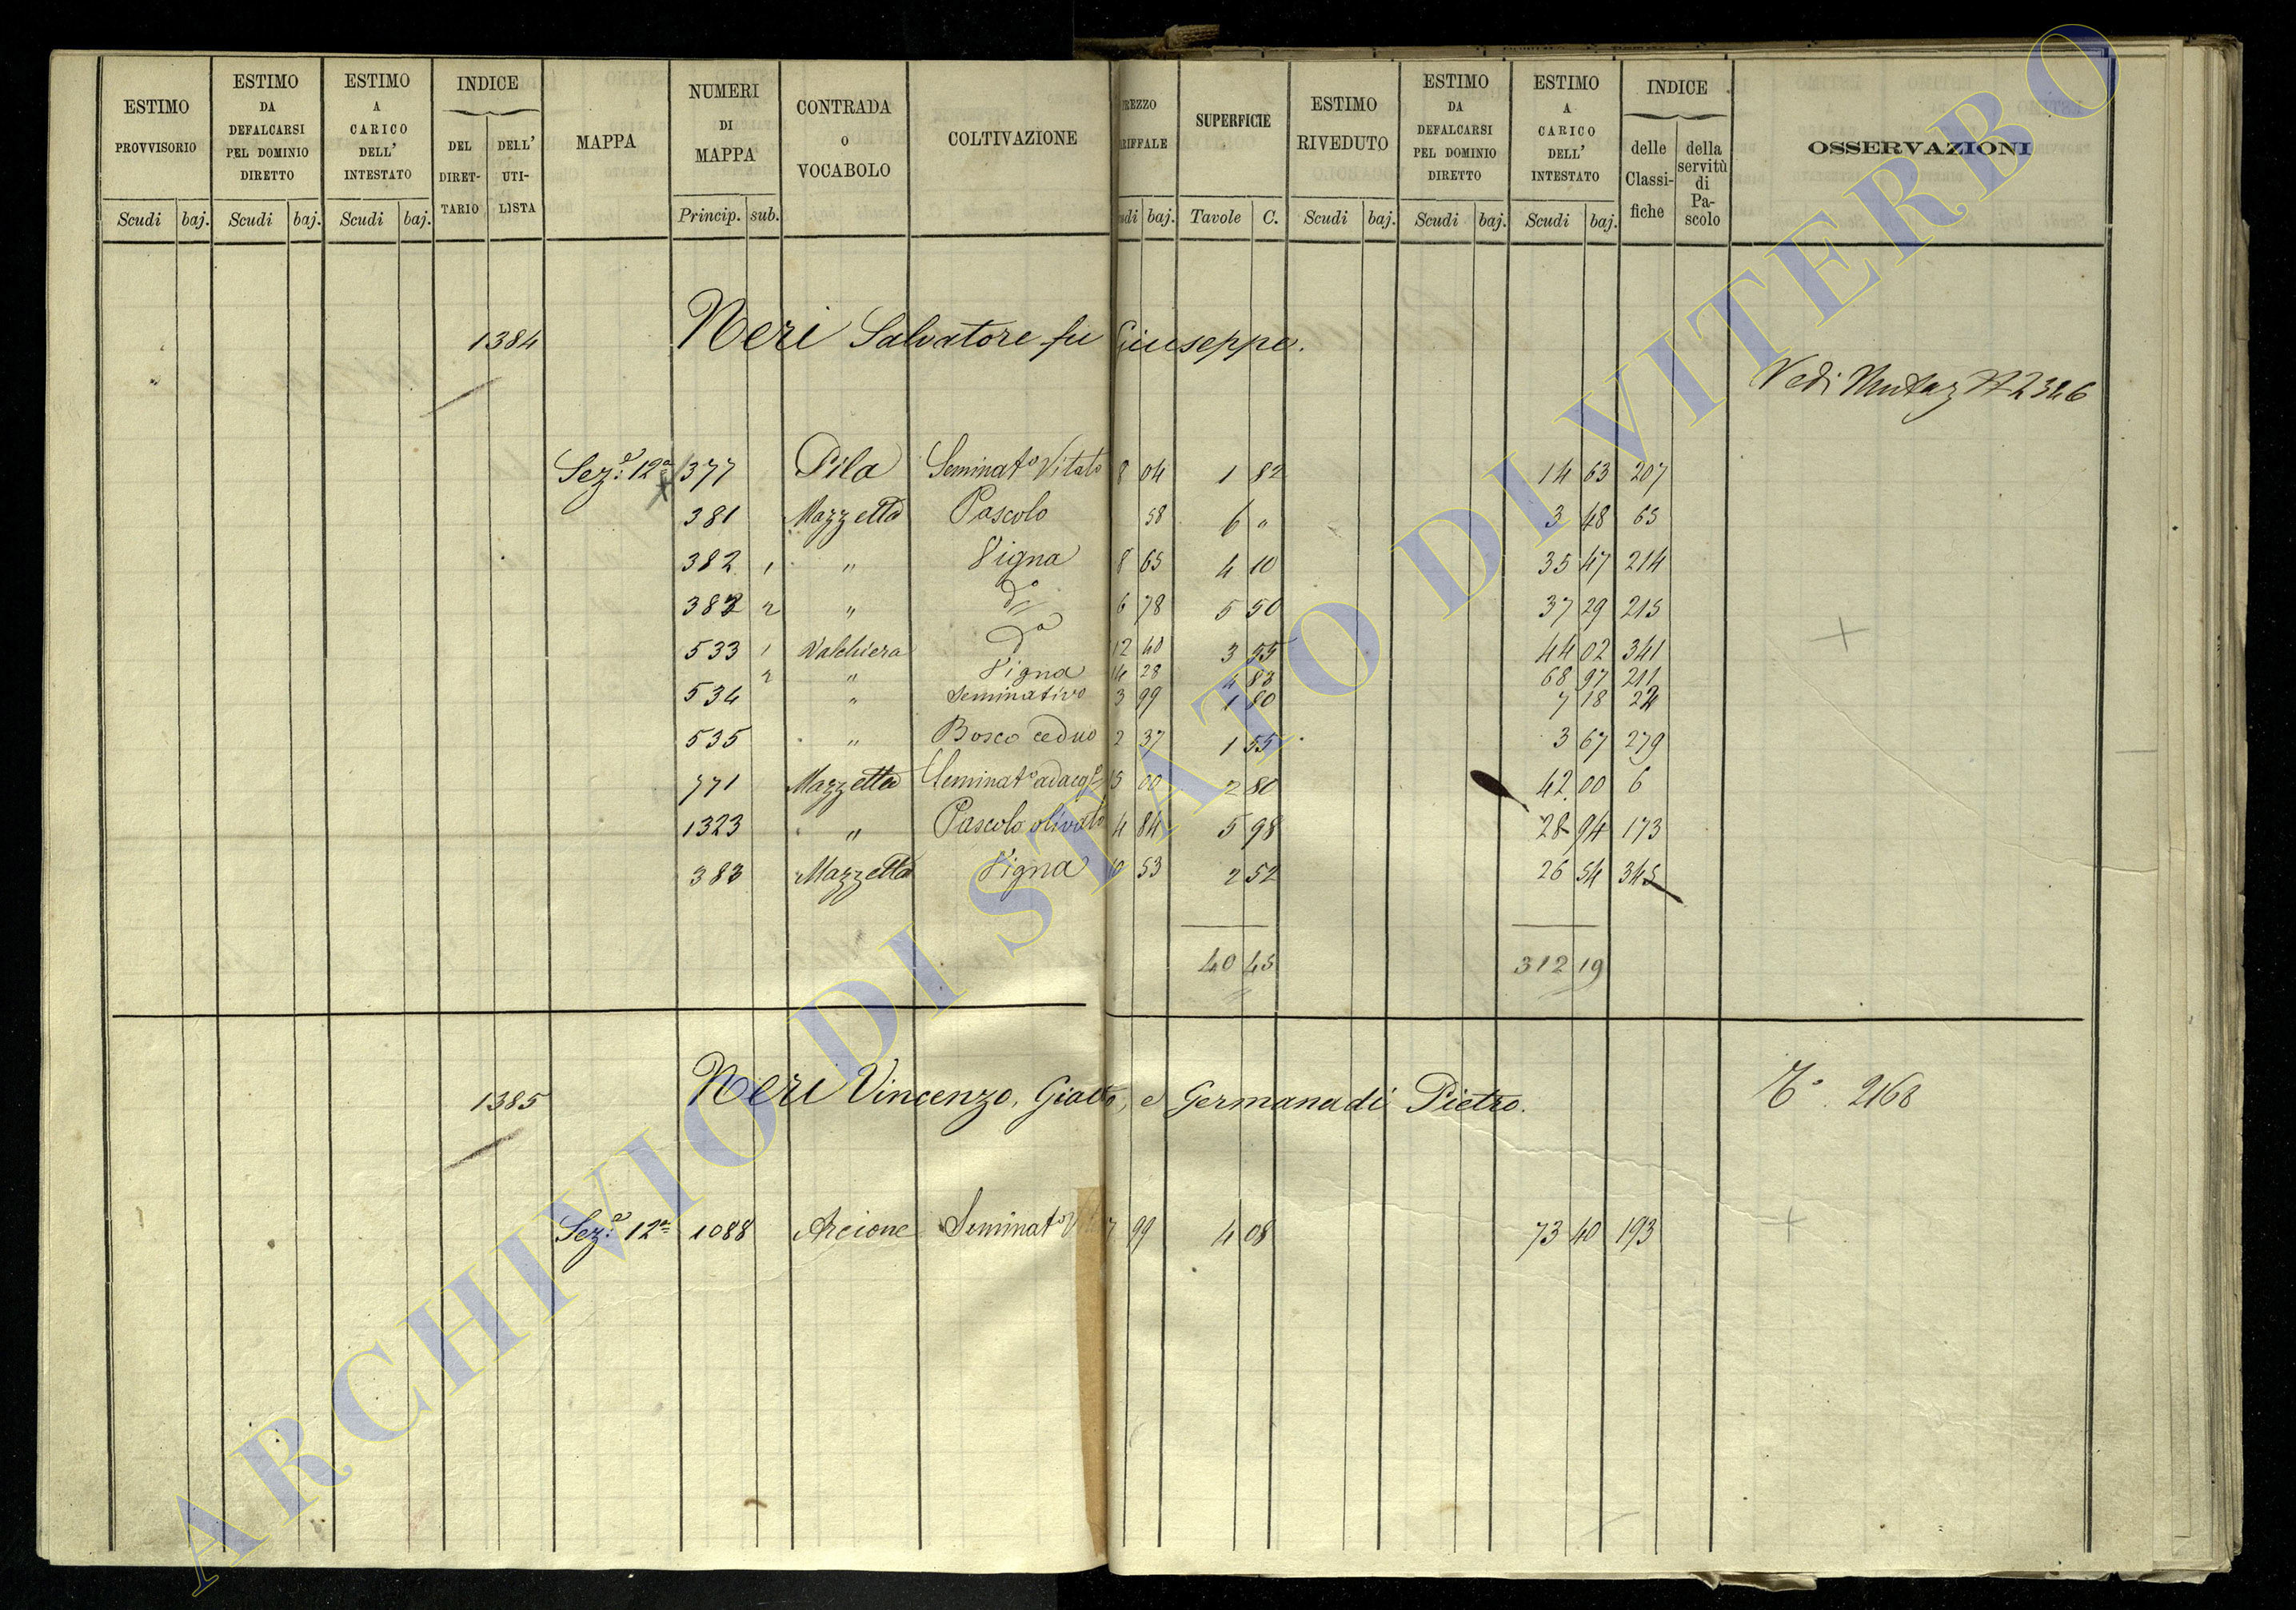 ESTIMO PROVVISORIO | ESTIMO DA DEFALCARSI PEL DOMINIO DIRETTO | ESTIMO A CARICO DELL' INTESTATO | INDICE DEL DIRETTARIO | DELL' UTILISTA | MAPPA | NUMERI DI MAPPA | CONTRADA O VOCABOLO | COLTIVAZIONE | SUPERFICIE | ESTIMO RIVEDUTO | ESTIMO DA DEFALCARSI PEL DOMINIO DIRETTO | ESTIMO A CARICO DELL' INTESTATO | INDICE delle Classifiche | della servitù di Pascolo | OSSERVAZIONI
Scudi baj. Scudi baj. Scudi baj. Princip. sub. baj. Tavole C. Scudi baj. Scudi baj. Scudi baj.
1384 Neri Salvatore fu Giuseppe.
Vedi Mutaz
Sez.e 12a 377 Pila Seminato Vitato 8 04 1 82 14 63 207
381 Mazzetta Pascolo 58 6 " 3 48 63
382 1 " Vigna 8 65 4 10 35 47 214
382 2 " do 6 78 5 50 37 29 215
533 1 Valchiera do 12 40 3 55 44 02 341
2 " Vigna 14 28 4 83 68 97 211
534 " Seminativo 3 99 1 80 7 18 24
535 " Bosco ceduo 2 37 1 55 3 67 279
771 Mazzetta Seminato adacqo 15 00 2 80 42 00 6
1323 " Pascolo olivato 4 84 5 98 28 94 173
383 Mazzetta Vigna 10 53 2 52 26 54 345
40 45 312 19
1385 Neri Vincenzo, Giacto, e Germana di Pietro.
2168
Sez.e 12a 1088 Arcione Seminato 99 4 08 73 40 193
ARCHIVIO DI STATO DI VITERBO